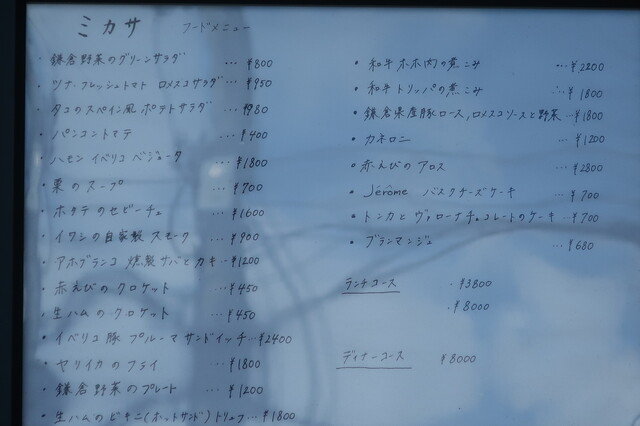 ミカサ フードメニュー
・鎌倉野菜のグリーンサラダ … ¥800
・ツナ・フレッシュトマト ロメスコサラダ … ¥950
・タコのスペイン風ポテトサラダ … ¥980
・パンコントマテ … ¥400
・ハモン イベリコ ベジョータ … ¥1800
・栗のスープ … ¥700
・ホタテのセビーチェ … ¥1600
・イワシの自家製スモーク … ¥900
・アホブランコ 燻製サバとカキ … ¥1200
・赤えびのクロケット … ¥450
・生ハムのクロケット … ¥450
・イベリコ豚 プルーマサンドイッチ … ¥2400
・ヤリイカのフライ … ¥1800
・鎌倉野菜のプレート … ¥1200
・生ハムのビキニ(ホットサンド)トリュフ … ¥1800
・和牛ホホ肉の煮こみ … ¥2200
・和牛トリッパの煮こみ … ¥1800
・鎌倉県産豚ロース,ロメスコソースと野菜 … ¥1800
・カネロニ … ¥1200
・赤えびのアロス … ¥2800
・Jérôme バスクチーズケーキ … ¥700
・トンカとヴァローナチョコレートのケーキ … ¥700
・ブランマンジュ … ¥680
ランチコース ・¥3800
・¥8000
ディナーコース ¥8000